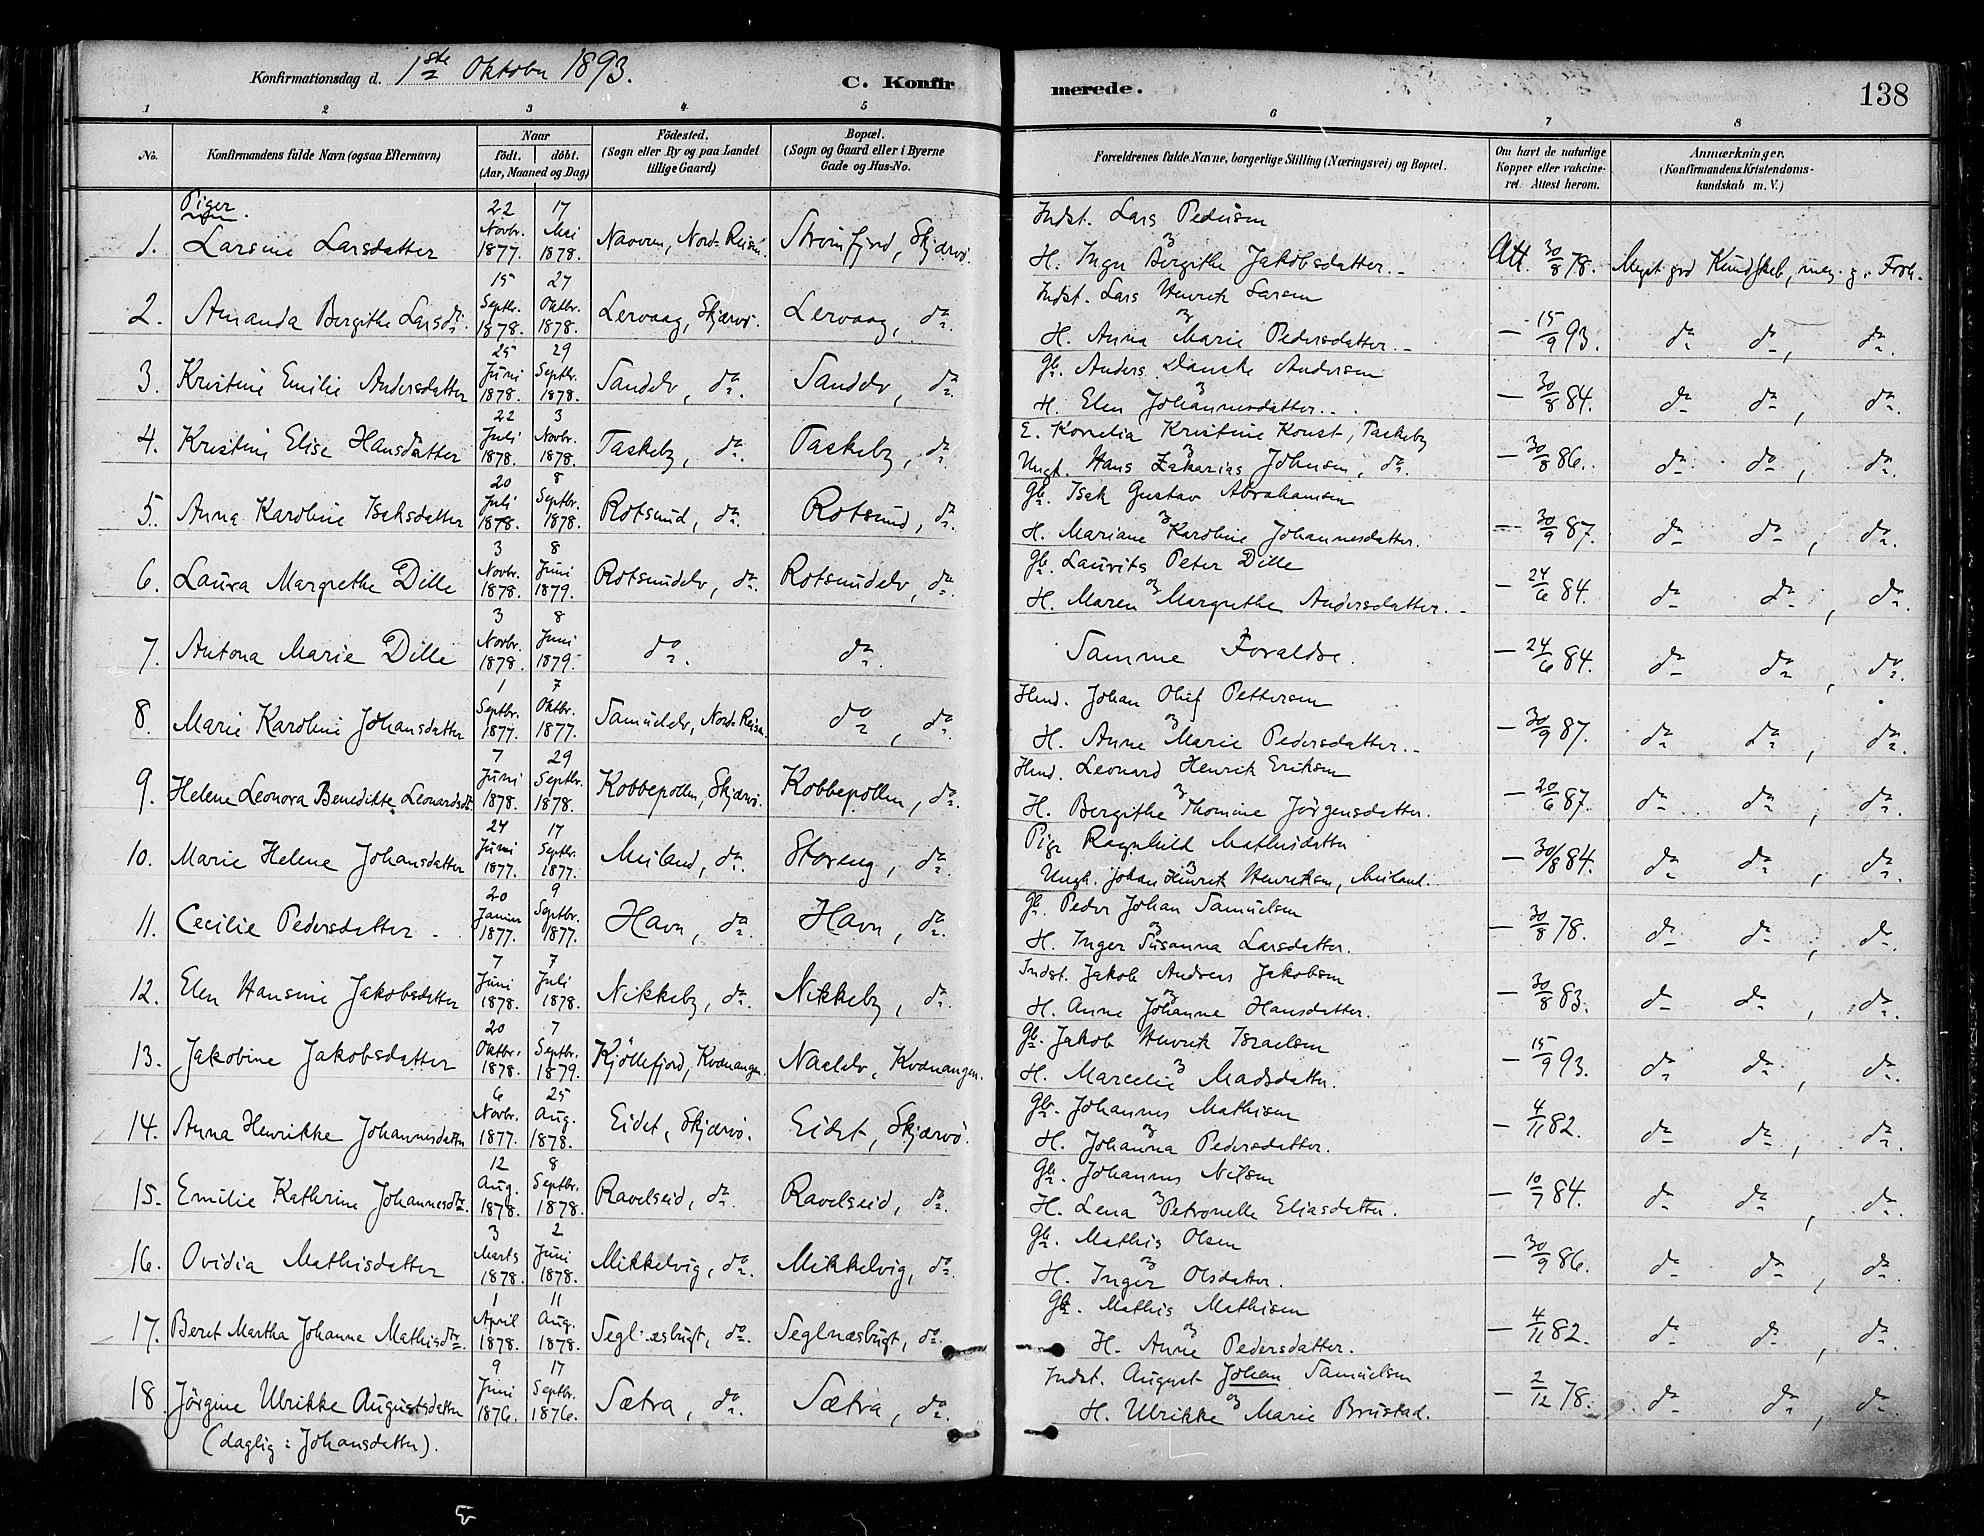 Konfirmationsdag d. 1ste Oktober 1893.
C. Konfirmerede.
138
1 2 3 4 5 6 7 8
No.
Konfirmandens fulde Navn (ogsaa Efternavn)
Naar
födt. döbt.
(Aar, Maaned og Dag)
Födested.
(Sogn eller By og paa Landet
tillige Gaard)
Bopæl.
(Sogn og Gaard eller i Byerne
Gade og Hus-No.
Forældrenes fulde Navne, borgerlige Stilling (Næringsvei) og Bopæl.
Om havt de naturlige
Kopper eller vakcine-
ret. Attest herom.
Anmærkninger.
(Konfirmandens Kristendoms-
kundskab m. V.)
Piger.
1. Larsine Larsdatter 22 Novbr. 1877. 17 Mai 1878. Navren, Nord-Reisen. Straumfjord, Skjærvö. Indst. Lars Pedersen
H. Inger Bergithe Jakobsdatter. Att. 30/8 78. Meget god Kundskab, meg. g. Forh.
2. Amanda Bergithe Larsdtr. 15 Septbr. 1878. 27 Oktbr. 1878. Lervaag, Skjærvö. Lervaag, do. Indst. Lars Henrik Larsen
H. Anna Marie Pedersdatter. – 15/9 93. do do, do.
3. Kristine Emilie Andersdatter 25 Juni 1878. 29 Septbr. 1878. Sandelv, do. Sandelv, do. Gb. Anders Danske Andersen
H. Elen Johannesdatter. – 30/8 84. do do, do.
4. Kristine Elise Hansdatter 22 Juli 1878. 3 Novbr. 1878. Taskeby, do. Taskeby, do. E. Kornelia Kristine Konst, Taskeby
Ungk. Hans Zakarias Johnsen, do. – 30/8 86. do do, do.
5. Anna Karoline Isaksdatter 20 Juli 1878. 8 Septbr. 1878. Rotsund, do. Rotsund, do. Gb. Isak Gustav Abrahamsen
H. Mariane Karoline Johannesdatter. – 30/9 87. do do, do.
6. Laura Margrethe Dille 3 Novbr. 1878. 8 Juni 1879. Rotsundelv, do. Rotsundelv, do. Gb. Laurits Peter Dille
H. Maren Margrethe Andersdatter. – 24/6 84. do do, do.
7. Antona Marie Dille 3 Novbr. 1878. 8 Juni 1879. do. do. Samme Foraldre. – 24/6 84. do do, do.
8. Marie Karoline Johansdatter 1 Septbr. 1877. 7 Oktbr. 1877. Samuelelv, Nord-Reisen. do, do. Hmd. Johan Oluf Pettersen
H. Anne Marie Pedersdatter. – 30/9 87. do do, do.
9. Helene Leonora Beneditte Leonardsdt. 7 Juni 1878. 29 Septbr. 1878. Kobbepollen, Skjærvö. Kobbepollen, do. Hmd. Leonard Henrik Eriksen
H. Bergithe Thomine Jörgensdatter. – 20/6 87. do do, do.
10. Marie Helene Johansdatter 24 Juni 1877. 17 Septbr. 1877. Meiland, do. Storeng, do. Pige Ragnhild Mathisdatter
Ungk. Johan Hinrik Henriksen, Meiland. – 30/8 84. do do, do.
11. Cecilie Pedersdatter 20 Januar 1877. 9 Septbr. 1877. Havn, do. Havn, do. Gb. Peder Johan Samuelsen
H. Inger Susanna Larsdatter. – 30/8 78. do do, do.
12. Elen Hansine Jakobsdatter 7 Juni 1878. 7 Juli 1878. Nikkeby, do. Nikkeby, do. Indst. Jakob Andreas Jakobsen
H. Anne Johanne Hansdatter. – 30/8 83. do do, do.
13. Jakobine Jakobsdatter 20 Oktbr. 1878. 7 Septbr. 1879. Kjöllefjord, Kvænangen. Naelelv, Kvænangen. Gb. Jakob Henrik Israelsen
H. Marcelie Madsdatter. – 15/9 93. do do, do.
14. Anna Henrikke Johannesdatter 6 Novbr. 1877. 25 Aug. 1878. Eidet, Skjærvö. Eidet, Skjærvö. Gb. Johannes Mathisen
H. Johanna Pedersdatter. – 4/11 82. do do, do.
15. Emilie Kathrine Johannesdtr. 12 Aug. 1878. 8 Septbr. 1878. Ravelseid, do. Ravelseid, do. Gb. Johannes Nilsen
H. Lena Petronelle Eliasdatter. – 10/7 84. do do, do.
16. Ovidia Mathisdatter 3 Marts 1878. 2 Juni 1878. Mikkelvig, do. Mikkelvig, do. Gb. Mathis Olsen
H. Inger Olsdatter. – 30/9 86. do do, do.
17. Beret Martha Johanne Mathisdtr. 1 April 1878. 11 Aug. 1878. Seglnæsbugt, do. Seglnæsbugt, do. Gb. Mathis Mathisen
H. Anne Pedersdatter. – 4/11 82. do do, do.
18. Jörgine Ulrikke Augustsdatter 9 Juni 1876. 17 Septbr. 1876. Sætra, do. Sætra, do. Indst. August Johan Samuelsen
(daglig: Johansdatter). H. Ulrikke Marie Brustad. – 2/12 78. do do, do.